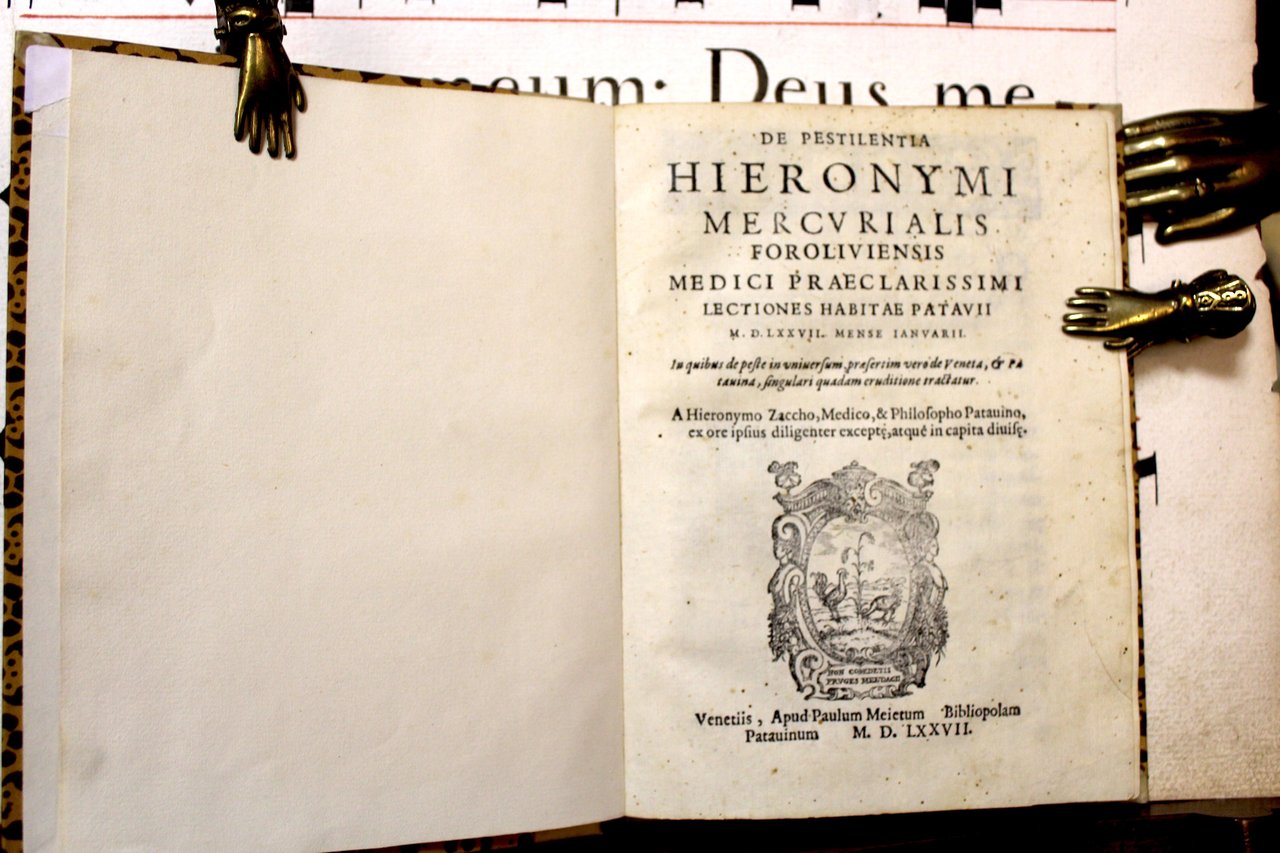 meum: Deus me
DE PESTILENTIA
HIERONYMI
MERCVRIALIS
FOROLIVIENSIS
MEDICI PRAECLARISSIMI
LECTIONES HABITAE PATAVII
M. D. LXXVII. MENSE IANVARII.
In quibus de peste in vniuerſum, præſertim vero de Veneta, & Pa
tauina, ſingulari quadam eruditione tractatur.
A Hieronymo Zaccho, Medico, & Philoſopho Patauino,
ex ore ipſius diligenter exceptę, atquè in capita diuiſę.
NON COMEDETIS
FRVGES MENDACII
Venetiis, Apud Paulum Meietum Bibliopolam
Patauinum M. D. LXXVII.